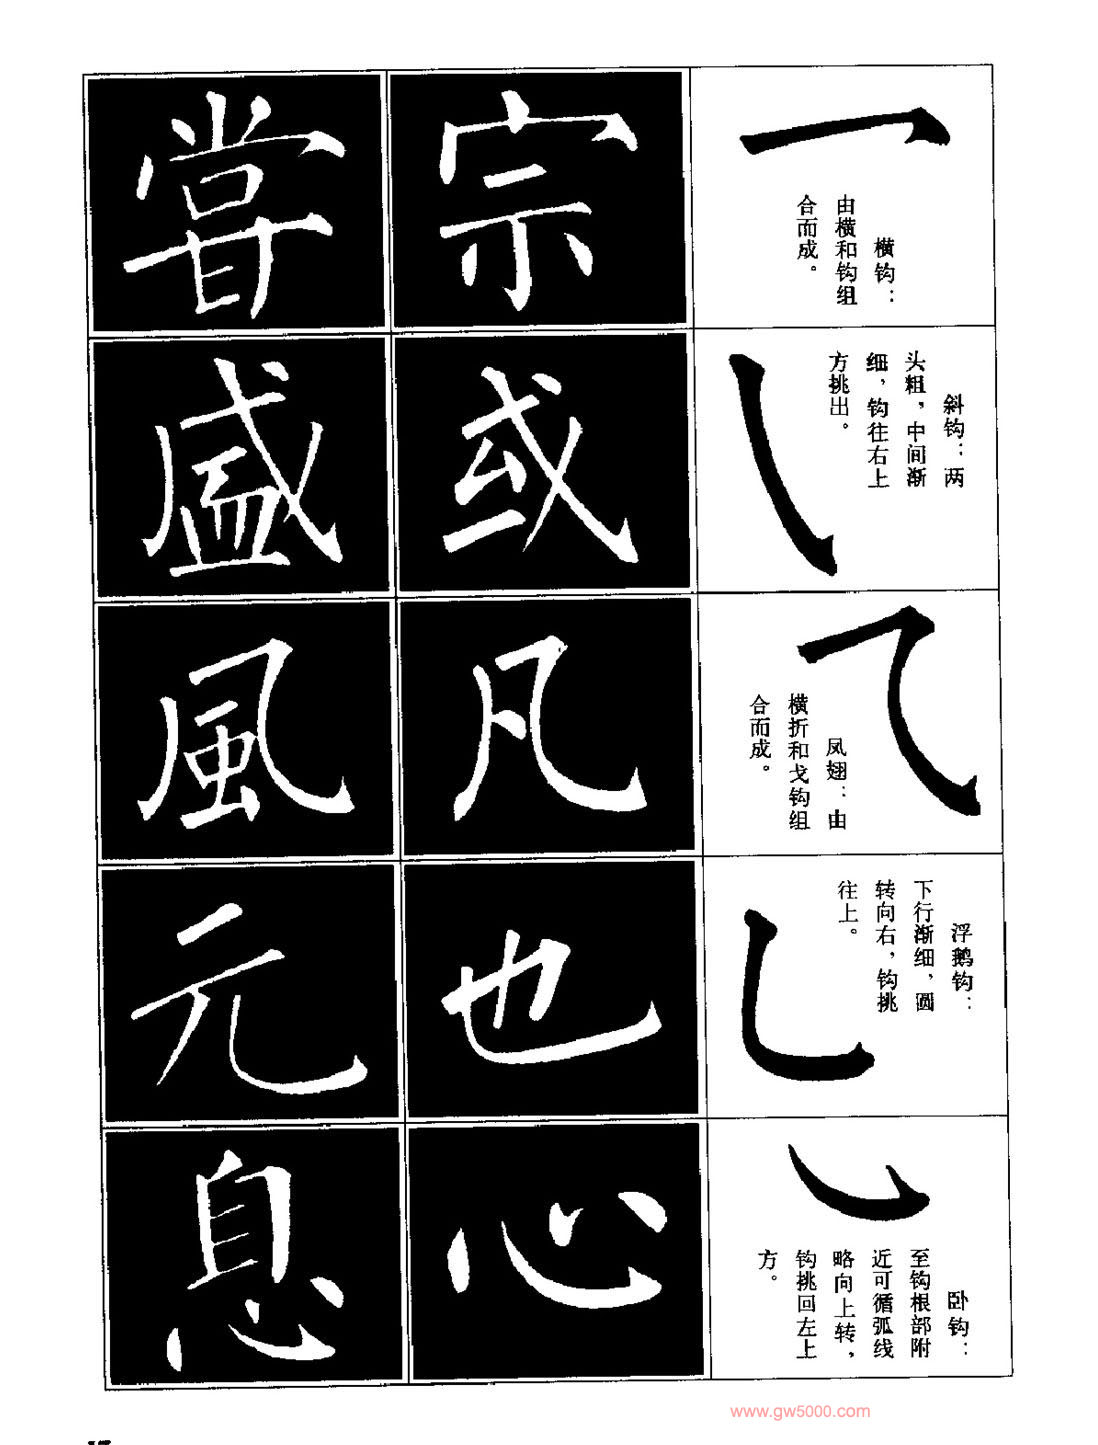 横钩：
由横和钩组
合而成。
宗
甞
斜钩：两
头粗，中间渐
细，钩往右上
方挑出。
或
盛
凤翅：由
横折和戈钩组
合而成。
凡
風
浮鹅钩：
下行渐细，圆
转向右，钩挑
往上。
也
元
卧钩：
至钩根部附
近可循弧线
略向上转，
钩挑回左上
方。
心
息
www.gw5000.com